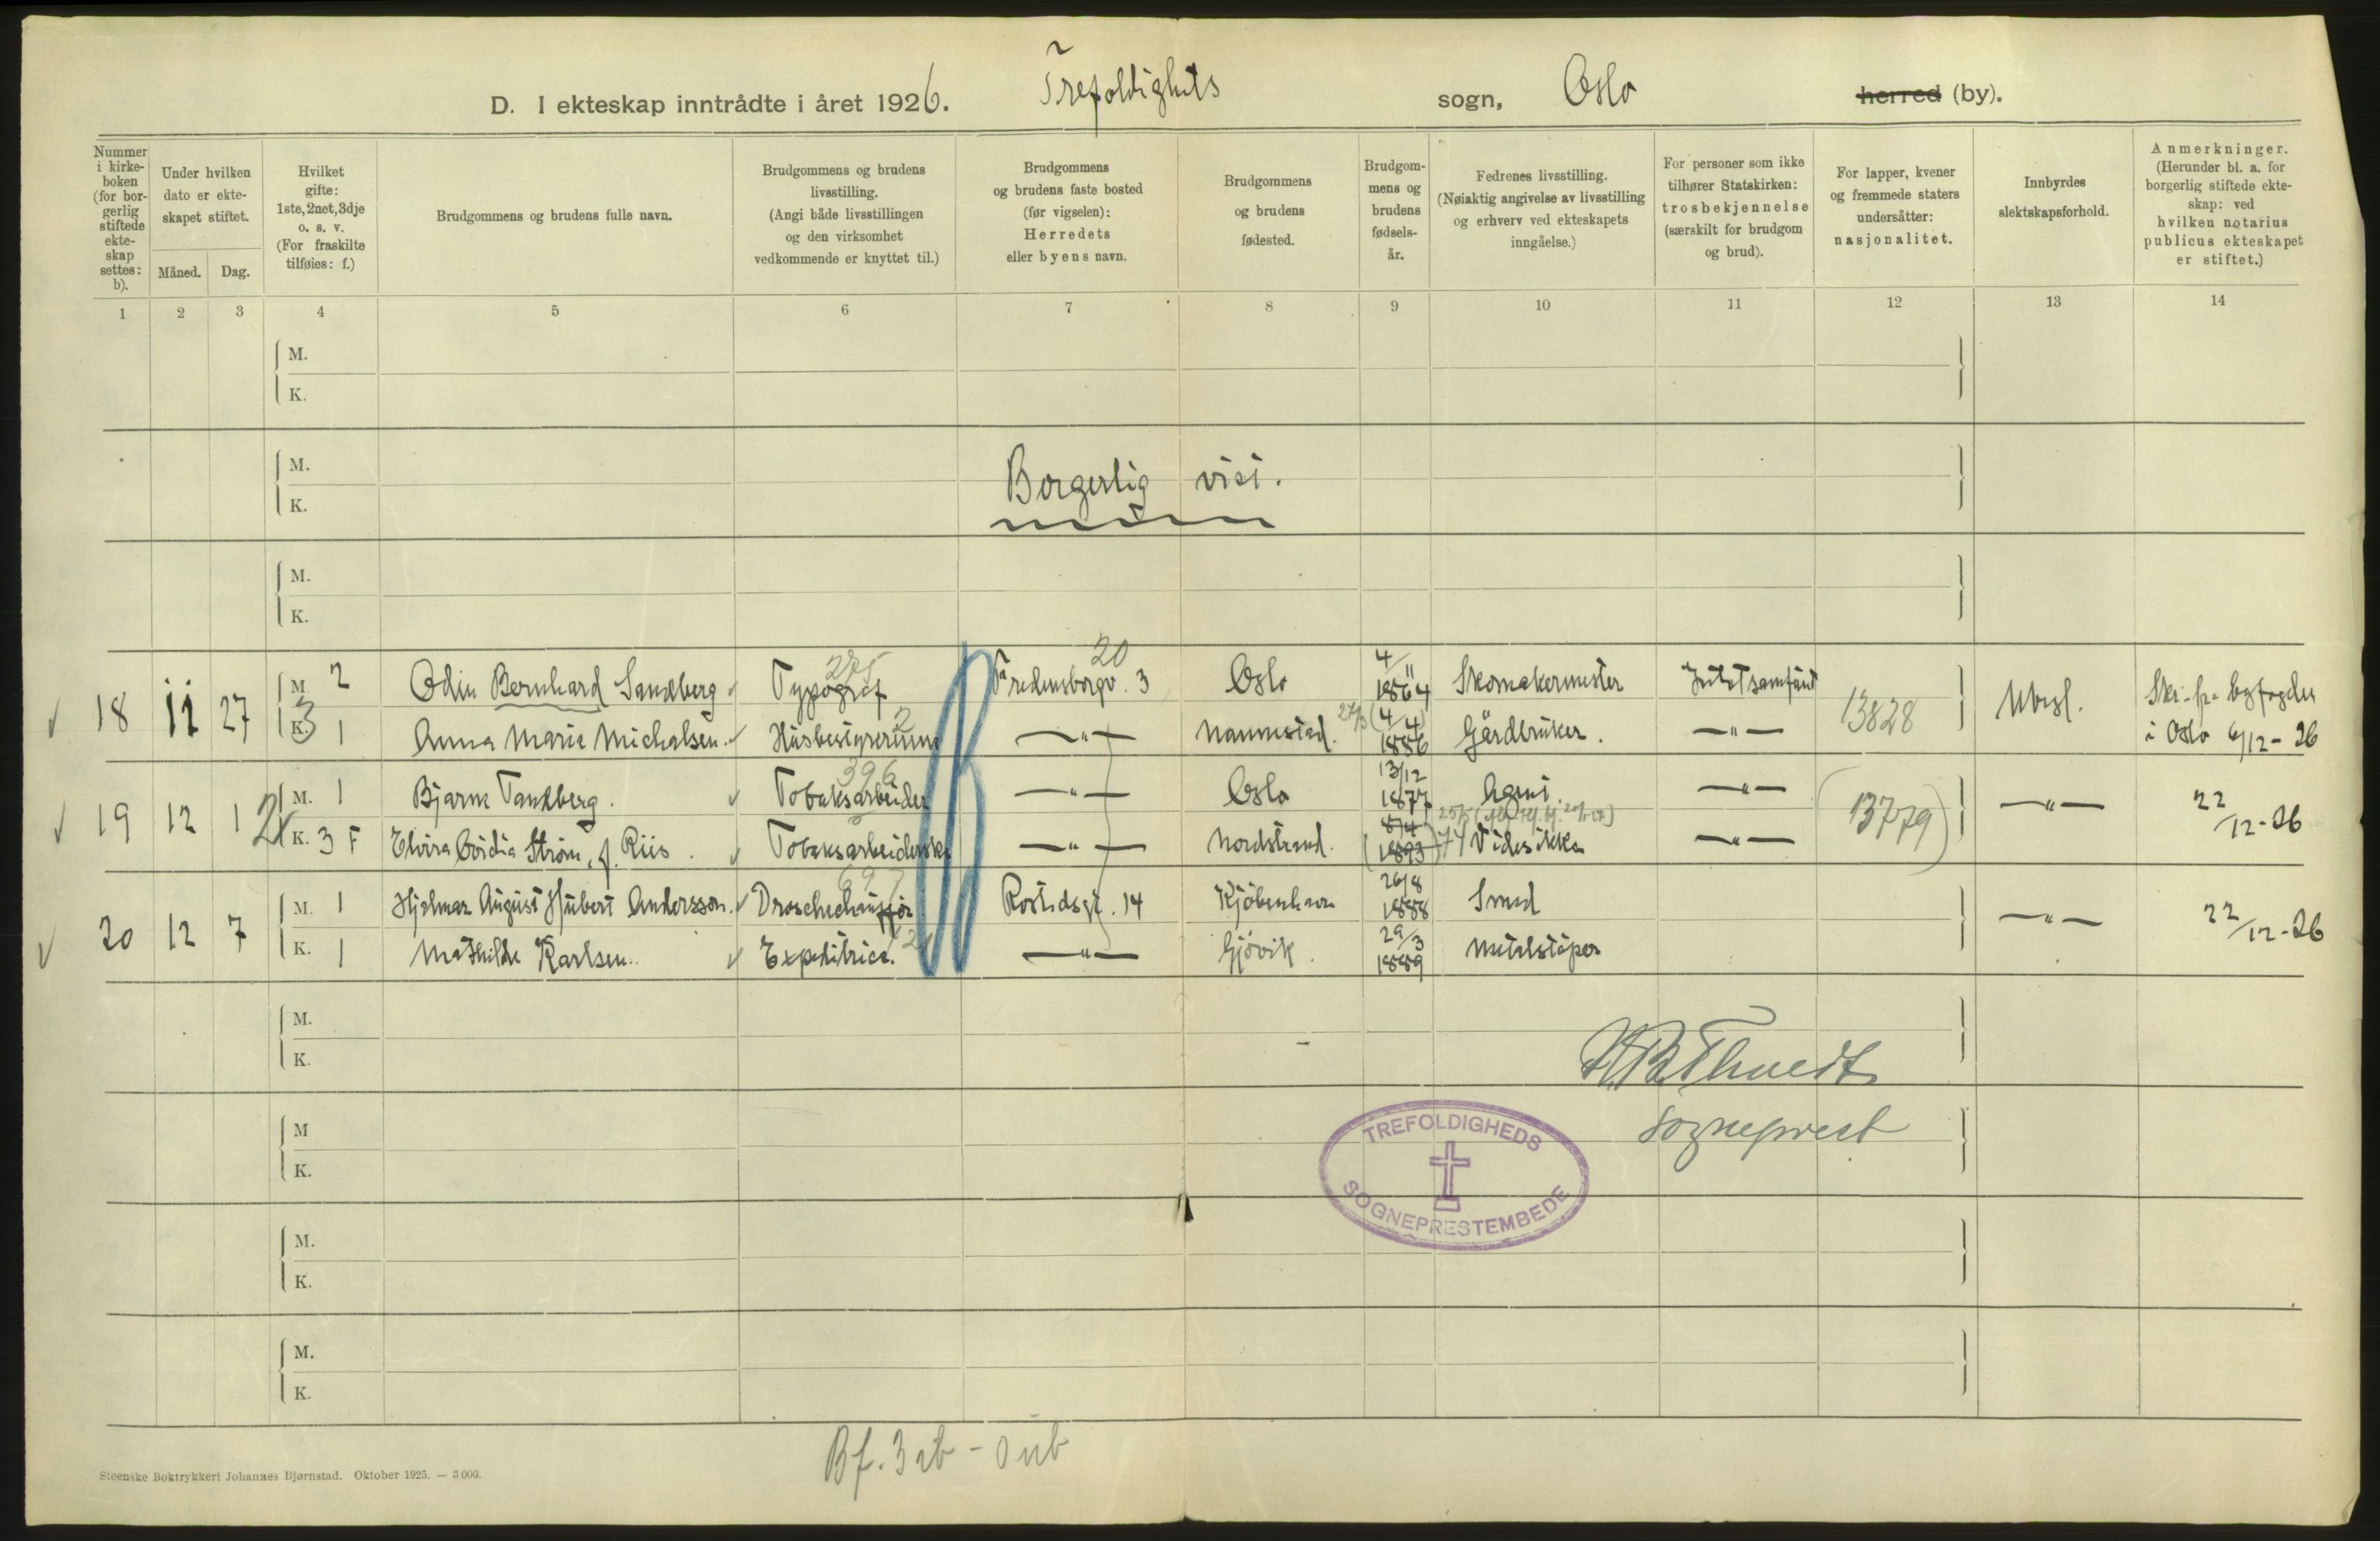 D. I ekteskap inntrådte i året 1926. Trefoldighets sogn, Oslo herred (by).
Nummer i kirkeboken (for borgerlig stiftede ekteskap settes: b).
Under hvilken dato er ekteskapet stiftet.
Måned. Dag.
Hvilket gifte: 1ste, 2net, 3dje o. s. v. (For fraskilte tilføies: f.)
Brudgommens og brudens fulle navn.
Brudgommens og brudens livsstilling. (Angi både livsstillingen og den virksomhet vedkommende er knyttet til.)
Brudgommens og brudens faste bosted (før vigselen): Herredets eller byens navn.
Brudgommens og brudens fødested.
Brudgommens og brudens fødselsår.
Fedrenes livsstilling. (Nøiaktig angivelse av livsstilling og erhverv ved ekteskapets inngåelse.)
For personer som ikke tilhører Statskirken: trosbekjennelse (særskilt for brudgom og brud).
For lapper, kvener og fremmede staters undersåtter: nasjonalitet.
Innbyrdes slektskapsforhold.
Anmerkninger. (Herunder bl. a. for borgerlig stiftede ekteskap: ved hvilken notarius publicus ekteskapet er stiftet.)
1 2 3 4 5 6 7 8 9 10 11 12 13 14
M.
K.
M.
Borgerlig viet.
K.
M.
K.
275 20
18 11 27 M. 2 Odin Bernhard Sandberg Typograf Fredensborgv. 3 Oslo 4/11 1864 Skomakermester 13828 Ubesl.
K. 1 Anna Marie Michalsen Husbestyrerinne —"— Nannestad 4/4 1886 Gårdbruker. —"— i Oslo 6/12-26
396
19 12 1 M. 1 Bjarne Tandberg. Tobaksarbeider —"— Oslo 13/12 1877 Agent. —"— 13779 —"— 22/12-26
K. 3 F Elvira Cordia Strøm, f. Riis. Tobaksarbeiderske —"— Nordstrand. 8/4 1893 Vides ikke —"—
20 12 7 M. 1 Hjalmar August Hubert Andersson. Droschechauffør Rostedsgt. 14 Kjöbenhavn 26/8 1888 Smed —"— 22/12-26
K. 1 Mathilde Karlsen. Expeditrice. —"— Gjövik. 29/3 1889 Metalstøper
M.
K.
M
sogneprest
K.
TREFOLDIGHEDS
SOGNEPRESTEMBEDE
M.
K.
M.
K.
Steenske Boktrykkeri Johannes Bjørnstad. Oktober 1925. — 3 000.